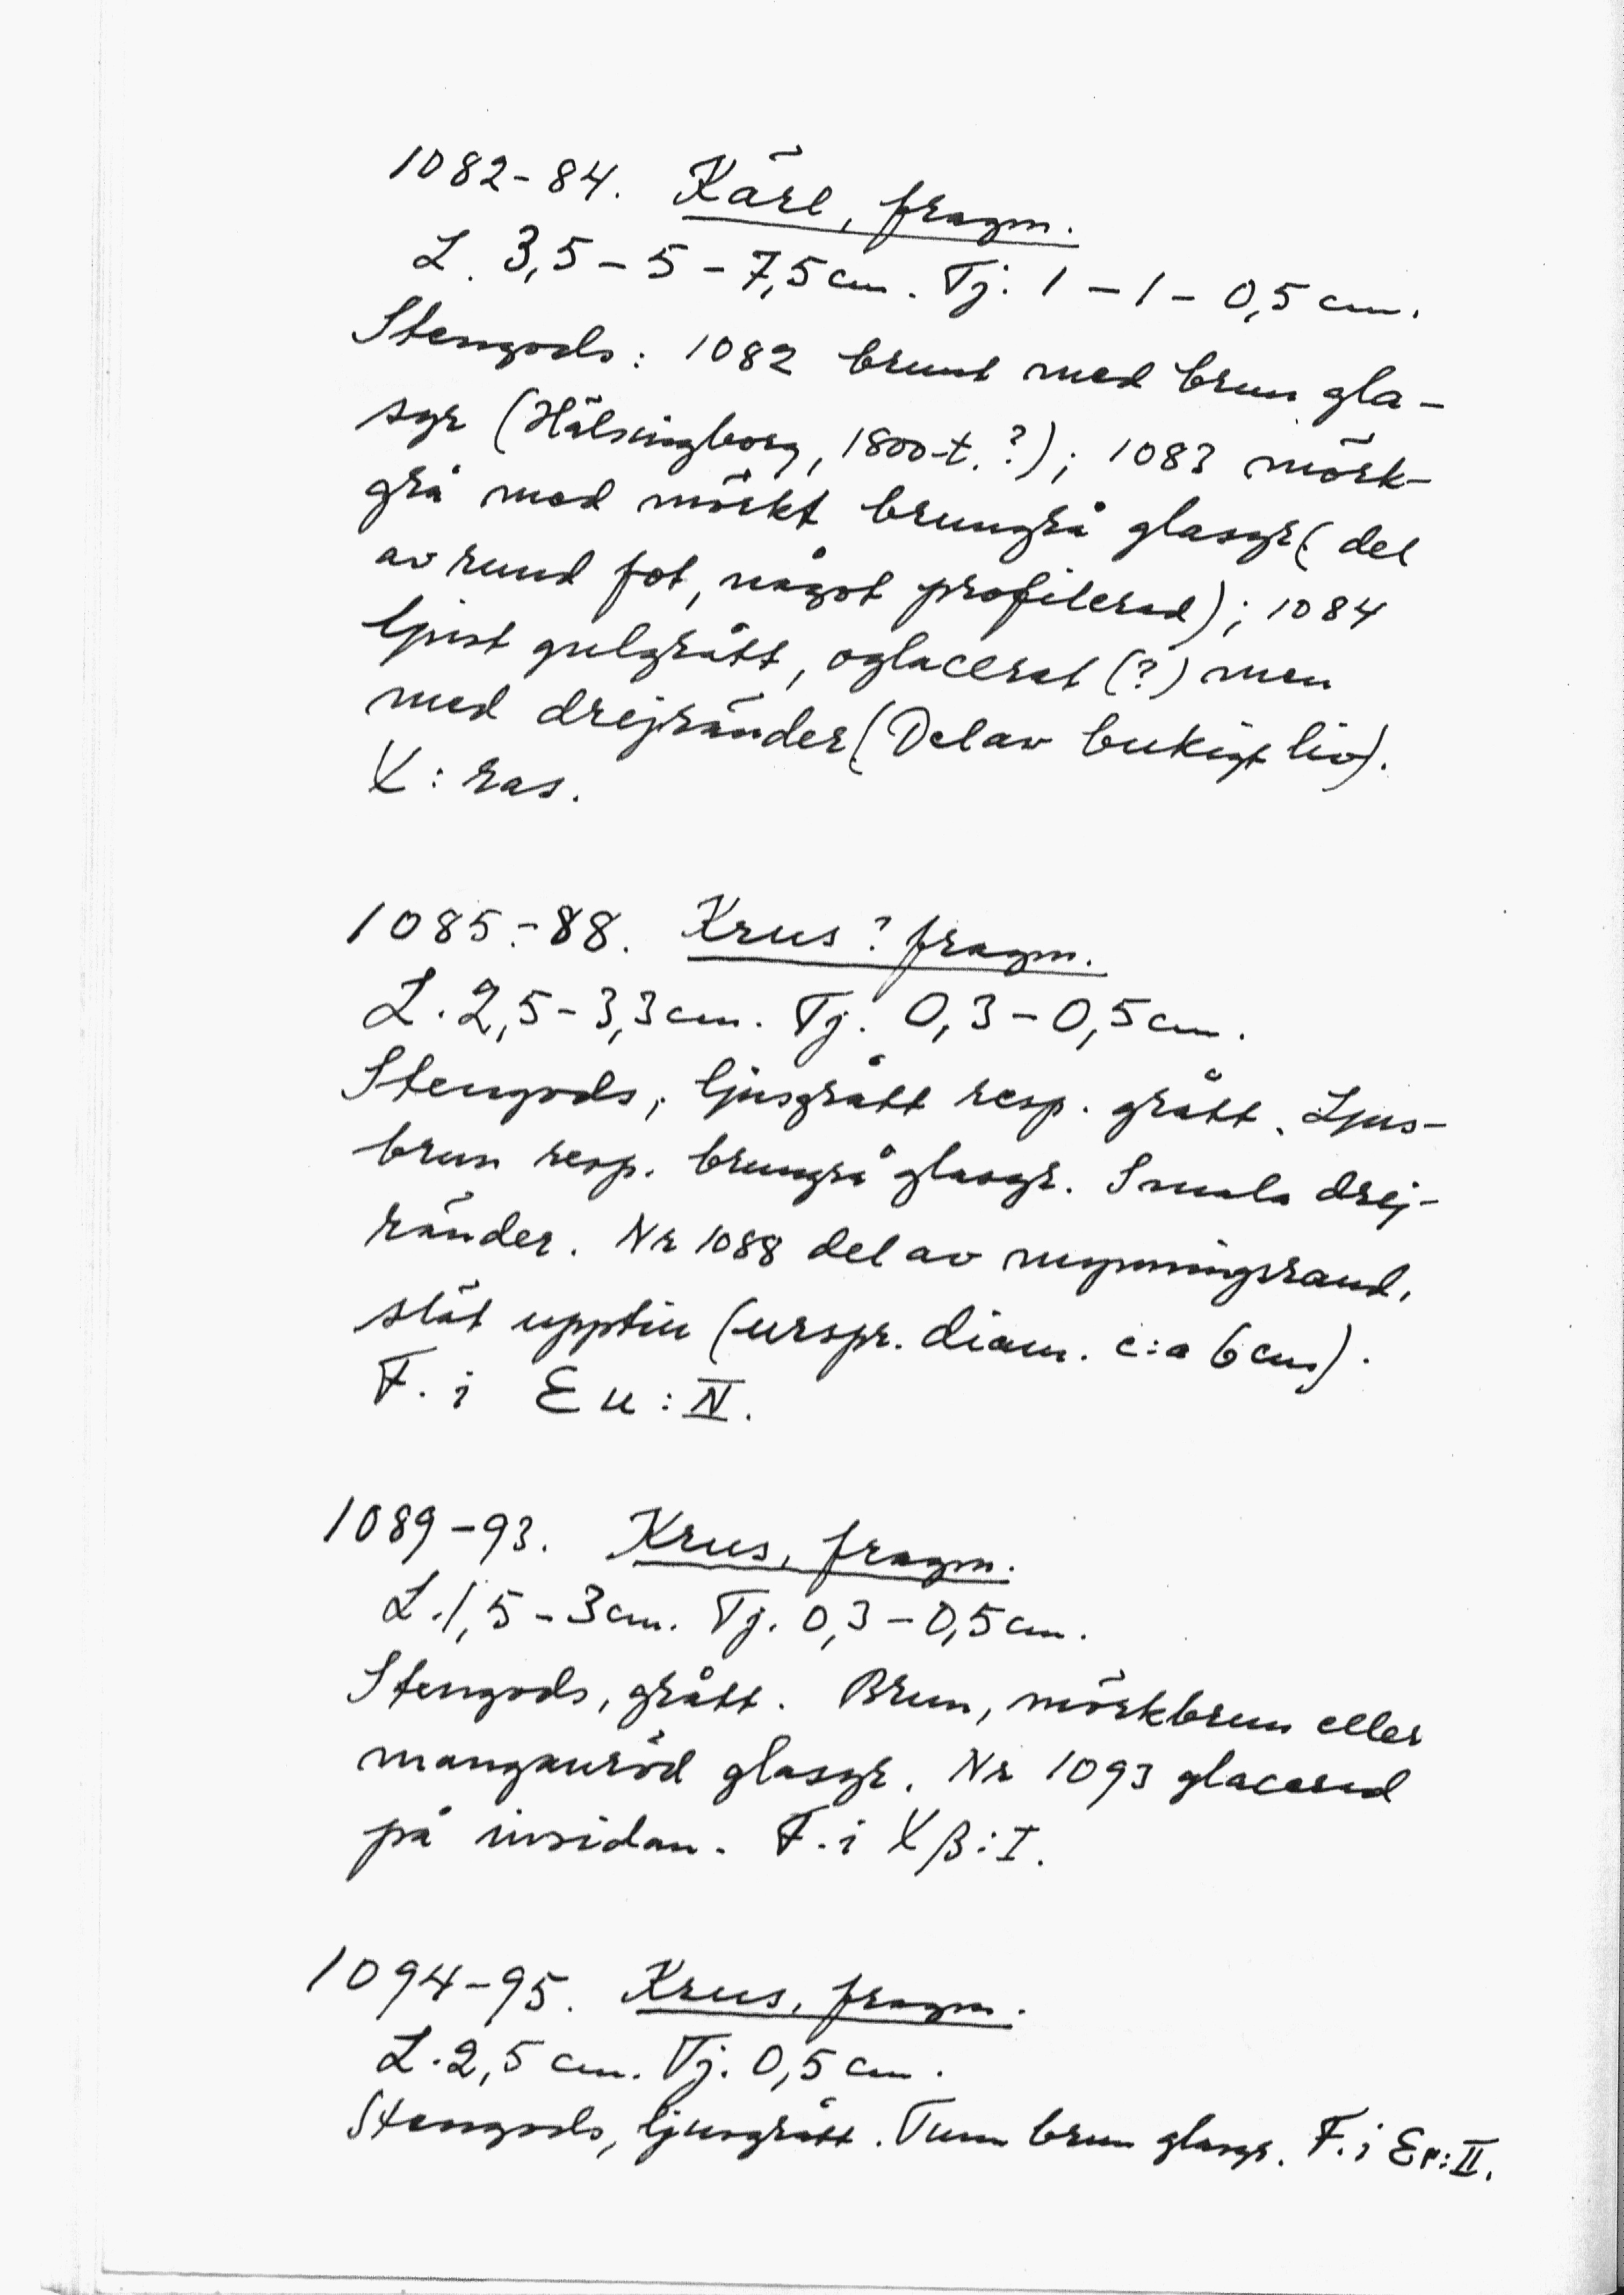 1082-84. Kärl, fragm.
L. 3,5 – 5 – 7,5 cm. Tj. 1 – 1 – 0,5 cm.
Stengods: 1082 brunt med brun gla-
syr (Hälsingborg, 1800-t.?); 1083 mörk-
grå med mörkt brungrå glasyr (del
av rund fot, något profilerad); 1084
ljust gulgrått, oglacerat (?) men
med drejränder (Del av bukigt liv).
X: ras.
1085-88. Krus? fragm.
L. 2,5 - 3,3 cm. Tj. 0,3 – 0,5 cm.
Stengods, ljusgrått resp. grått. Ljus-
brun resp. brungrå glasyr. Smala drej-
ränder. Nr 1088 del av mynningsrand,
slät upptill (urspr. diam. c:a 6 cm).
F. i Eu: IV.
1089-93. Krus, fragm.
L. 1,5 – 3 cm. Tj. 0,3 – 0,5 cm.
Stengods, grått. Brun, mörkbrun eller
manganröd glasyr. Nr 1093 glacerad
på insidan. F. i Xβ: I.
1094-95. Krus, fragm.
L. 2,5 cm. Tj. 0,5 cm.
Stengods, ljusgrått. Tunn brun glasyr. F. i : II.